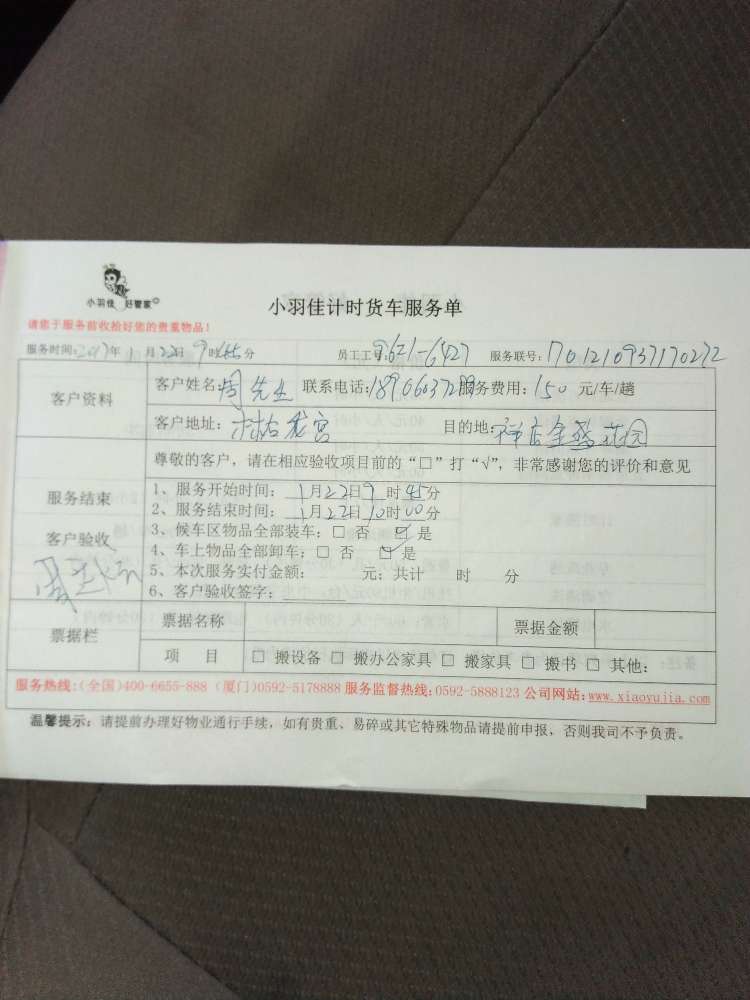 小羽佳 好管家
小羽佳计时货车服务单
请您于服务前收拾好您的贵重物品！
服务时间：2017年1月22日9时45分 员工工号：9621-6427 服务联号：1701210937170272
客户资料
客户姓名：周先生 联系电话： 服务费用：150 元/车/趟
客户地址： 目的地：祥店金盛花园
服务结束
客户验收
尊敬的客户，请在相应验收项目前的“□”打“√”，非常感谢您的评价和意见
1、服务开始时间：1月22日9时45分
2、服务结束时间：1月22日10时00分
3、候车区物品全部装车：□ 否 ☑ 是
4、车上物品全部卸车：□ 否 ☑ 是
5、本次服务实付金额： 元；共计 时 分
6、客户验收签字：
票据栏
票据名称 票据金额
项 目 □ 搬设备 □ 搬办公家具 □ 搬家具 □ 搬书 □ 其他：
服务热线：(全国)400-6655-888 (厦门)0592-5178888 服务监督热线：0592-5888123 公司网站：www.xiaoyujia.com
温馨提示：请提前办理好物业通行手续，如有贵重、易碎或其它特殊物品请提前申报，否则我司不予负责。